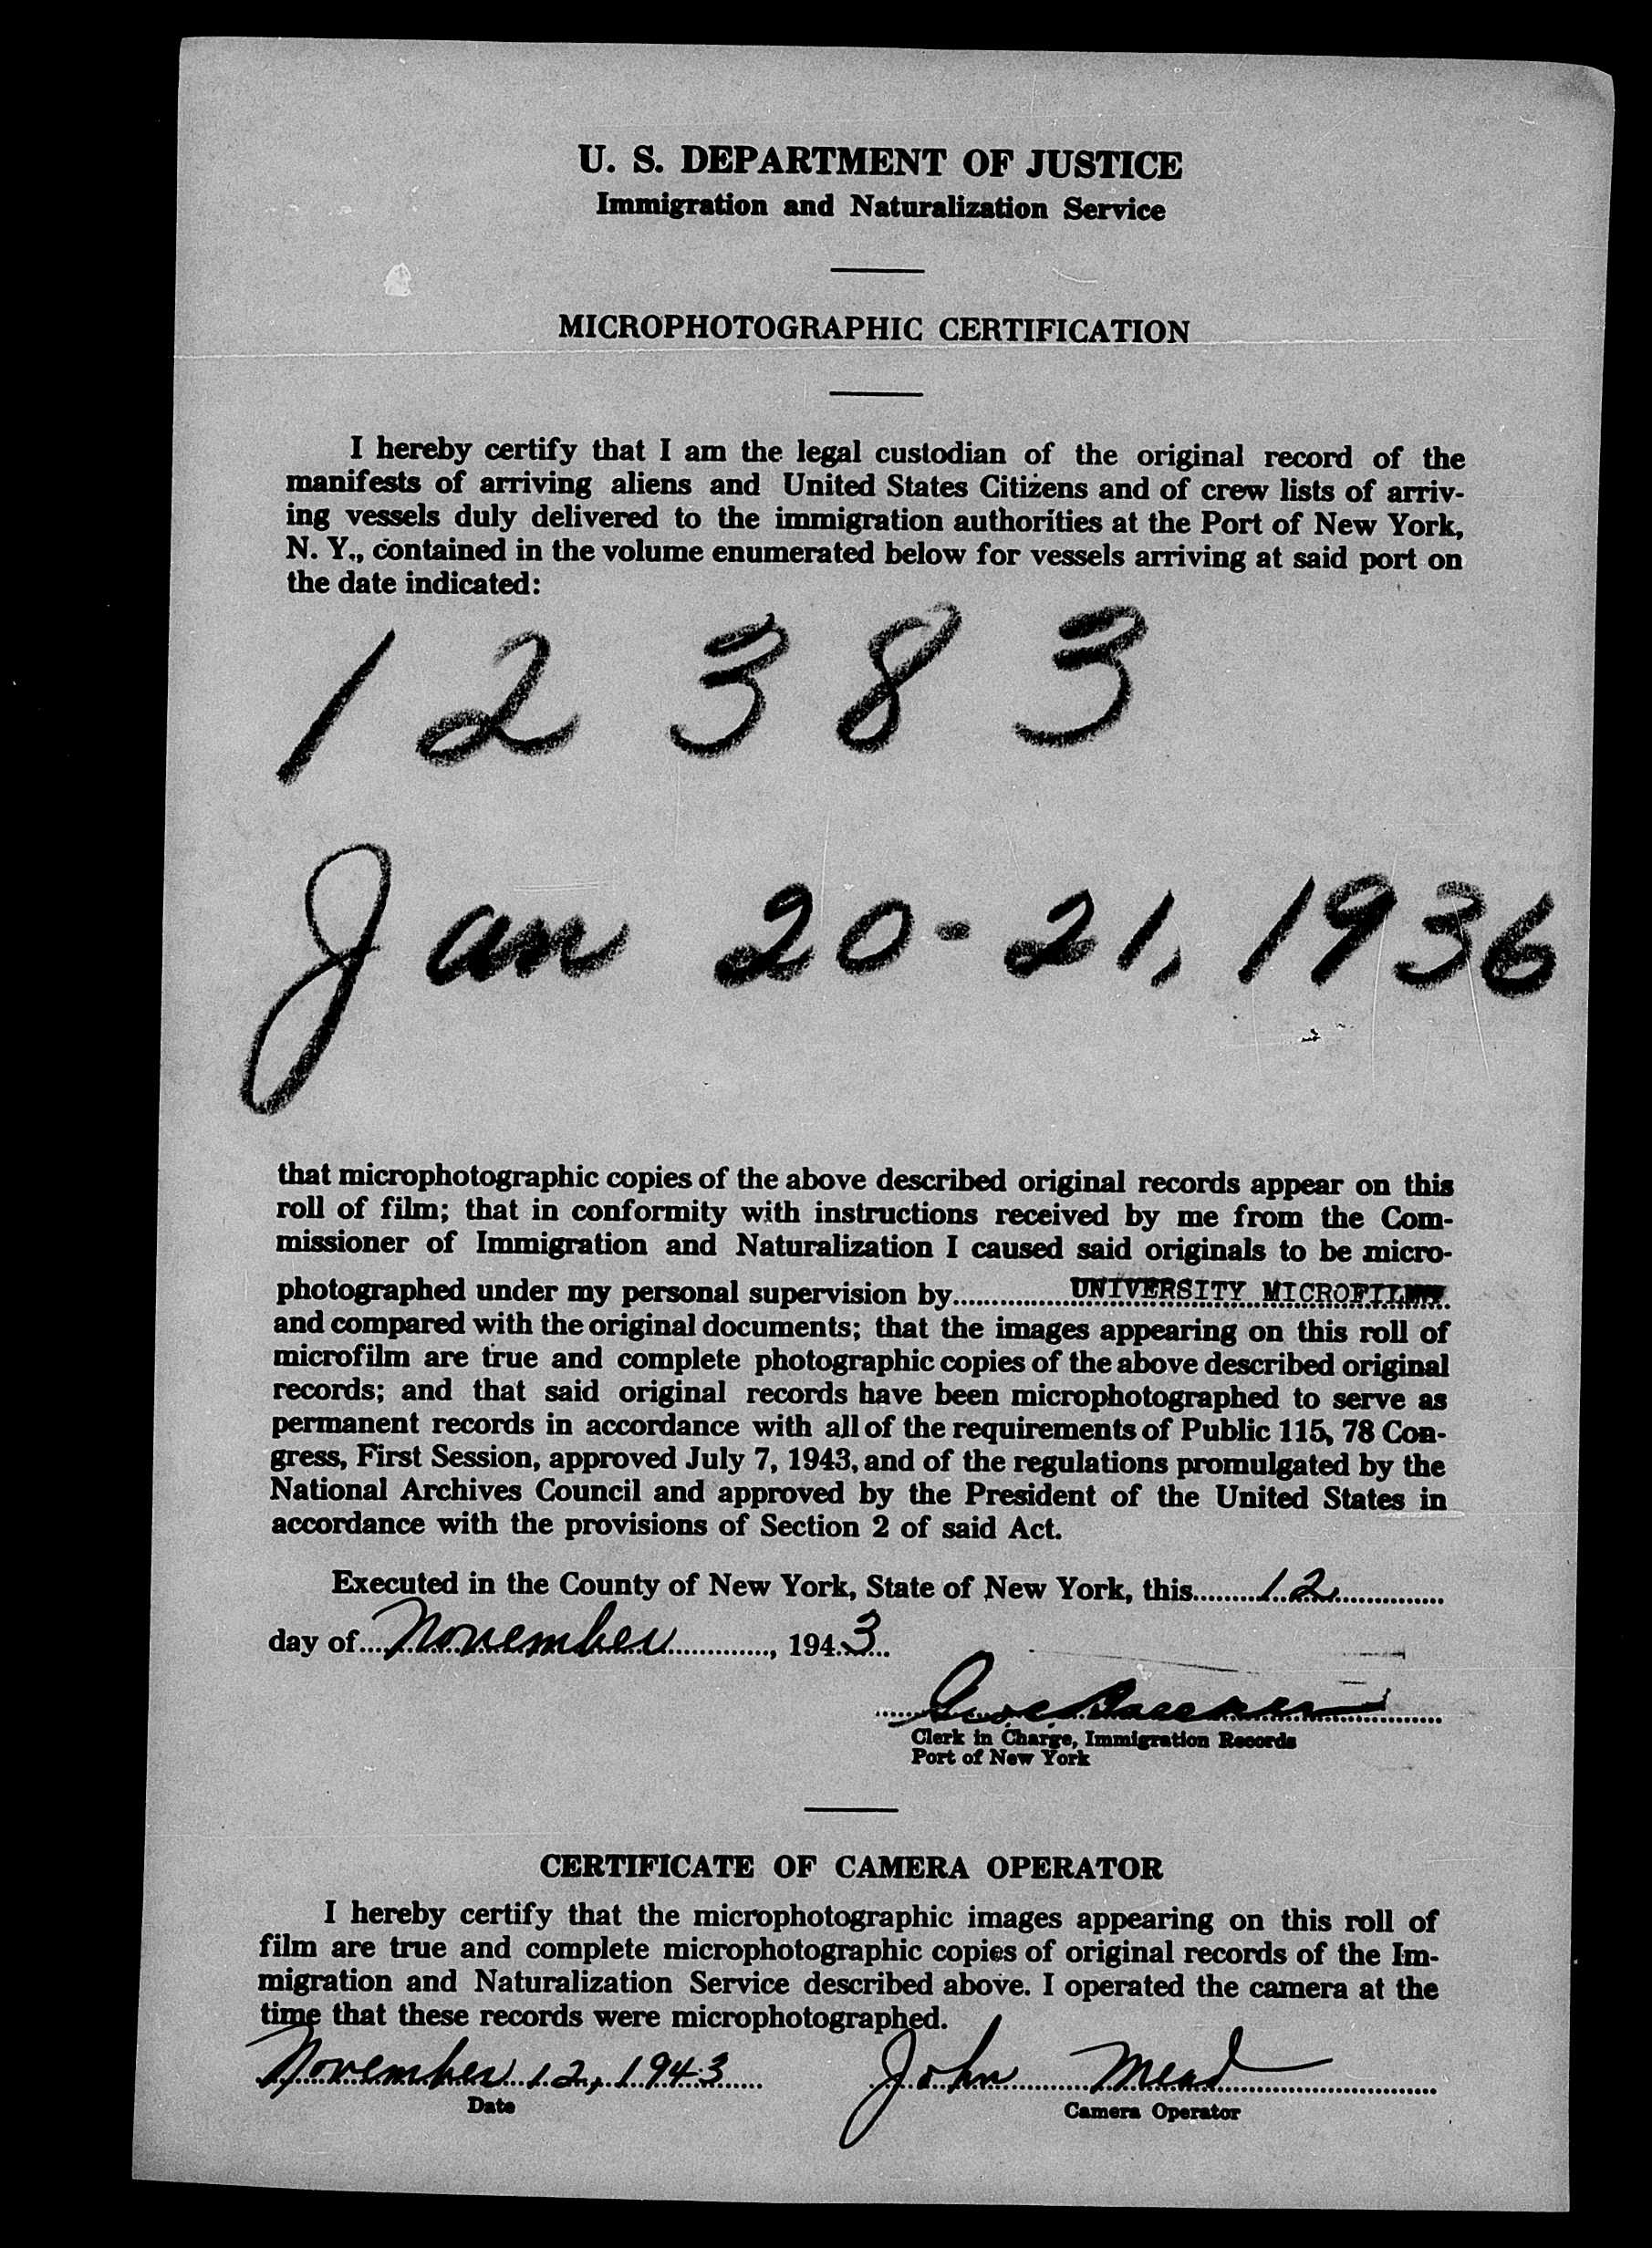 U. S. DEPARTMENT OF JUSTICE
Immigration and Naturalization Service
MICROPHOTOGRAPHIC CERTIFICATION
I hereby certify that I am the legal custodian of the original record of the
manifests of arriving aliens and United States Citizens and of crew lists of arriv-
ing vessels duly delivered to the immigration authorities at the Port of New York,
N. Y., contained in the volume enumerated below for vessels arriving at said port on
the date indicated:
12383
Jan 20-21, 1936
that microphotographic copies of the above described original records appear on this
roll of film; that in conformity with instructions received by me from the Com-
missioner of Immigration and Naturalization I caused said originals to be micro-
photographed under my personal supervision by UNIVERSITY MICROFILMS
and compared with the original documents; that the images appearing on this roll of
microfilm are true and complete photographic copies of the above described original
records; and that said original records have been microphotographed to serve as
permanent records in accordance with all of the requirements of Public 115, 78 Con-
gress, First Session, approved July 7, 1943, and of the regulations promulgated by the
National Archives Council and approved by the President of the United States in
accordance with the provisions of Section 2 of said Act.
Executed in the County of New York, State of New York, this 12
day of November, 1943
Clerk in Charge, Immigration Records
Port of New York
CERTIFICATE OF CAMERA OPERATOR
I hereby certify that the microphotographic images appearing on this roll of
film are true and complete microphotographic copies of original records of the Im-
migration and Naturalization Service described above. I operated the camera at the
time that these records were microphotographed.
November 12, 1943 John Mead
Date Camera Operator